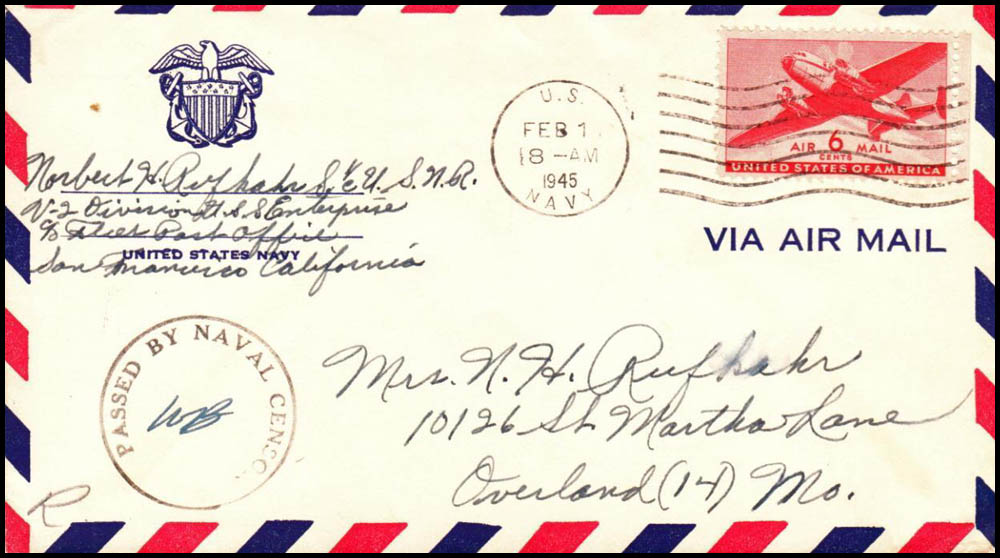 Norbert H. Rufkahr S 1/c U.S.N.R.
V-2 Division U.S.S Enterprise
c/o Fleet Post Office
UNITED STATES NAVY
San Francisco California
U.S.
FEB 1
8 - AM
1945
NAVY
AIR 6 MAIL
CENTS
UNITED STATES OF AMERICA
VIA AIR MAIL
PASSED BY NAVAL CENSO
WB
Mrs. N. H. Rufkahr
10126 St Martha Lane
Overland (14) Mo.
R